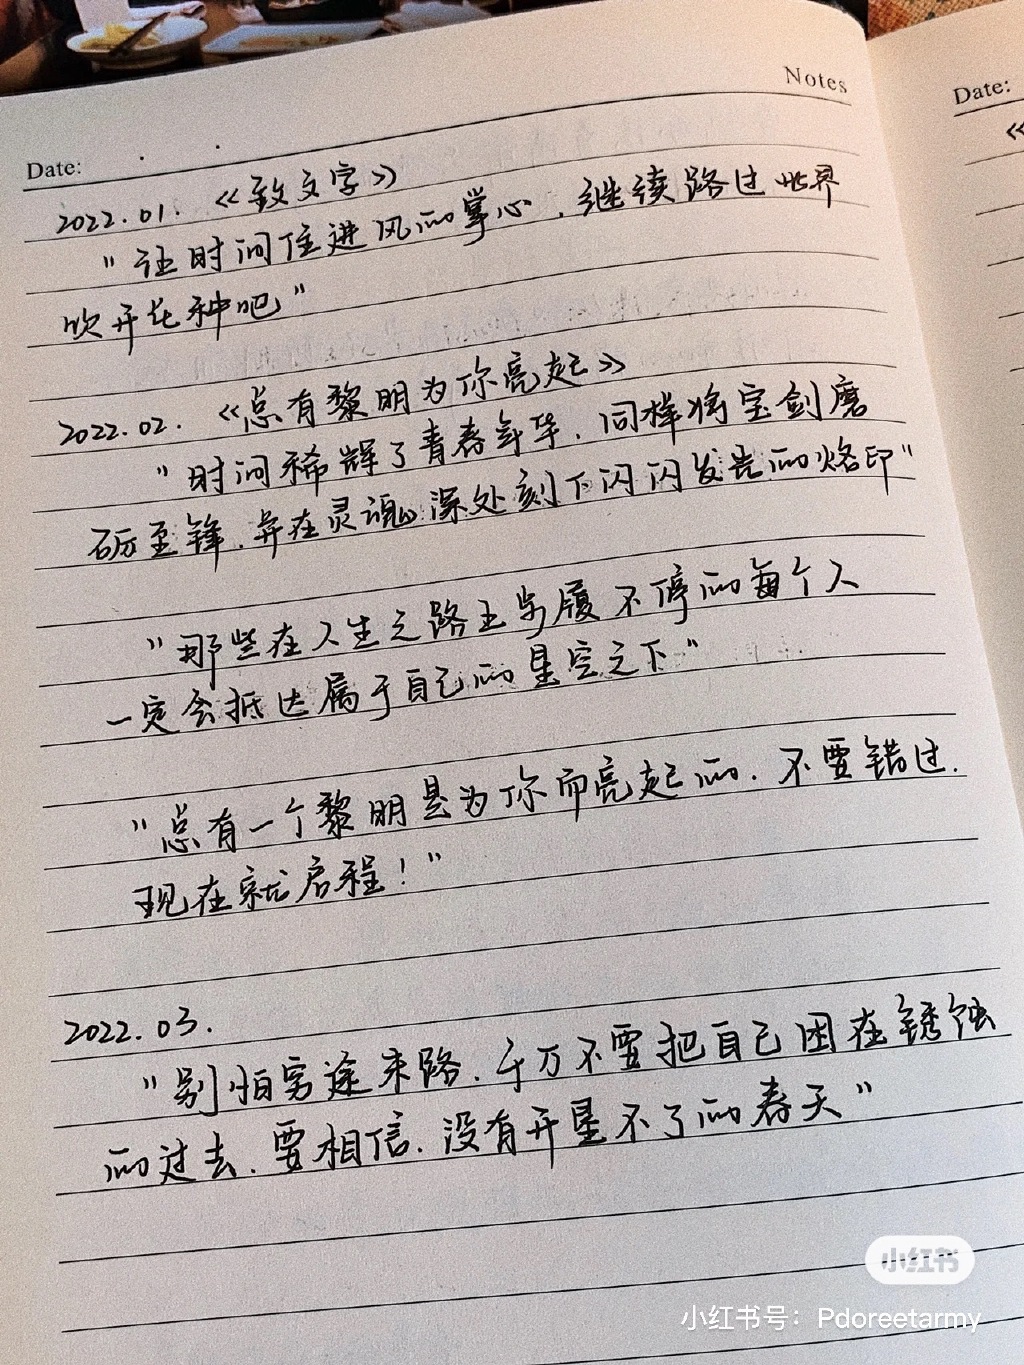 Notes
Date:
Date:
《
2022.01. 《致文字》
"让时间住进风的掌心，继续路过世界
吹开花种吧"
2022.02. 《总有黎明为你亮起》
"时间稀辉了青春年华，同样将宝剑磨
砺至锋，并在灵魂深处刻下闪闪发光的烙印"
"那些在人生之路上步履不停的每个人
一定会抵达属于自己的星空之下"
"总有一个黎明是为你而亮起的.不要错过.
现在就启程！"
2022.03.
"别怕穷途末路.千万不要把自己困在锈蚀
的过去.要相信.没有开垦不了的春天"
小红书
小红书号：Pdoreetarmy